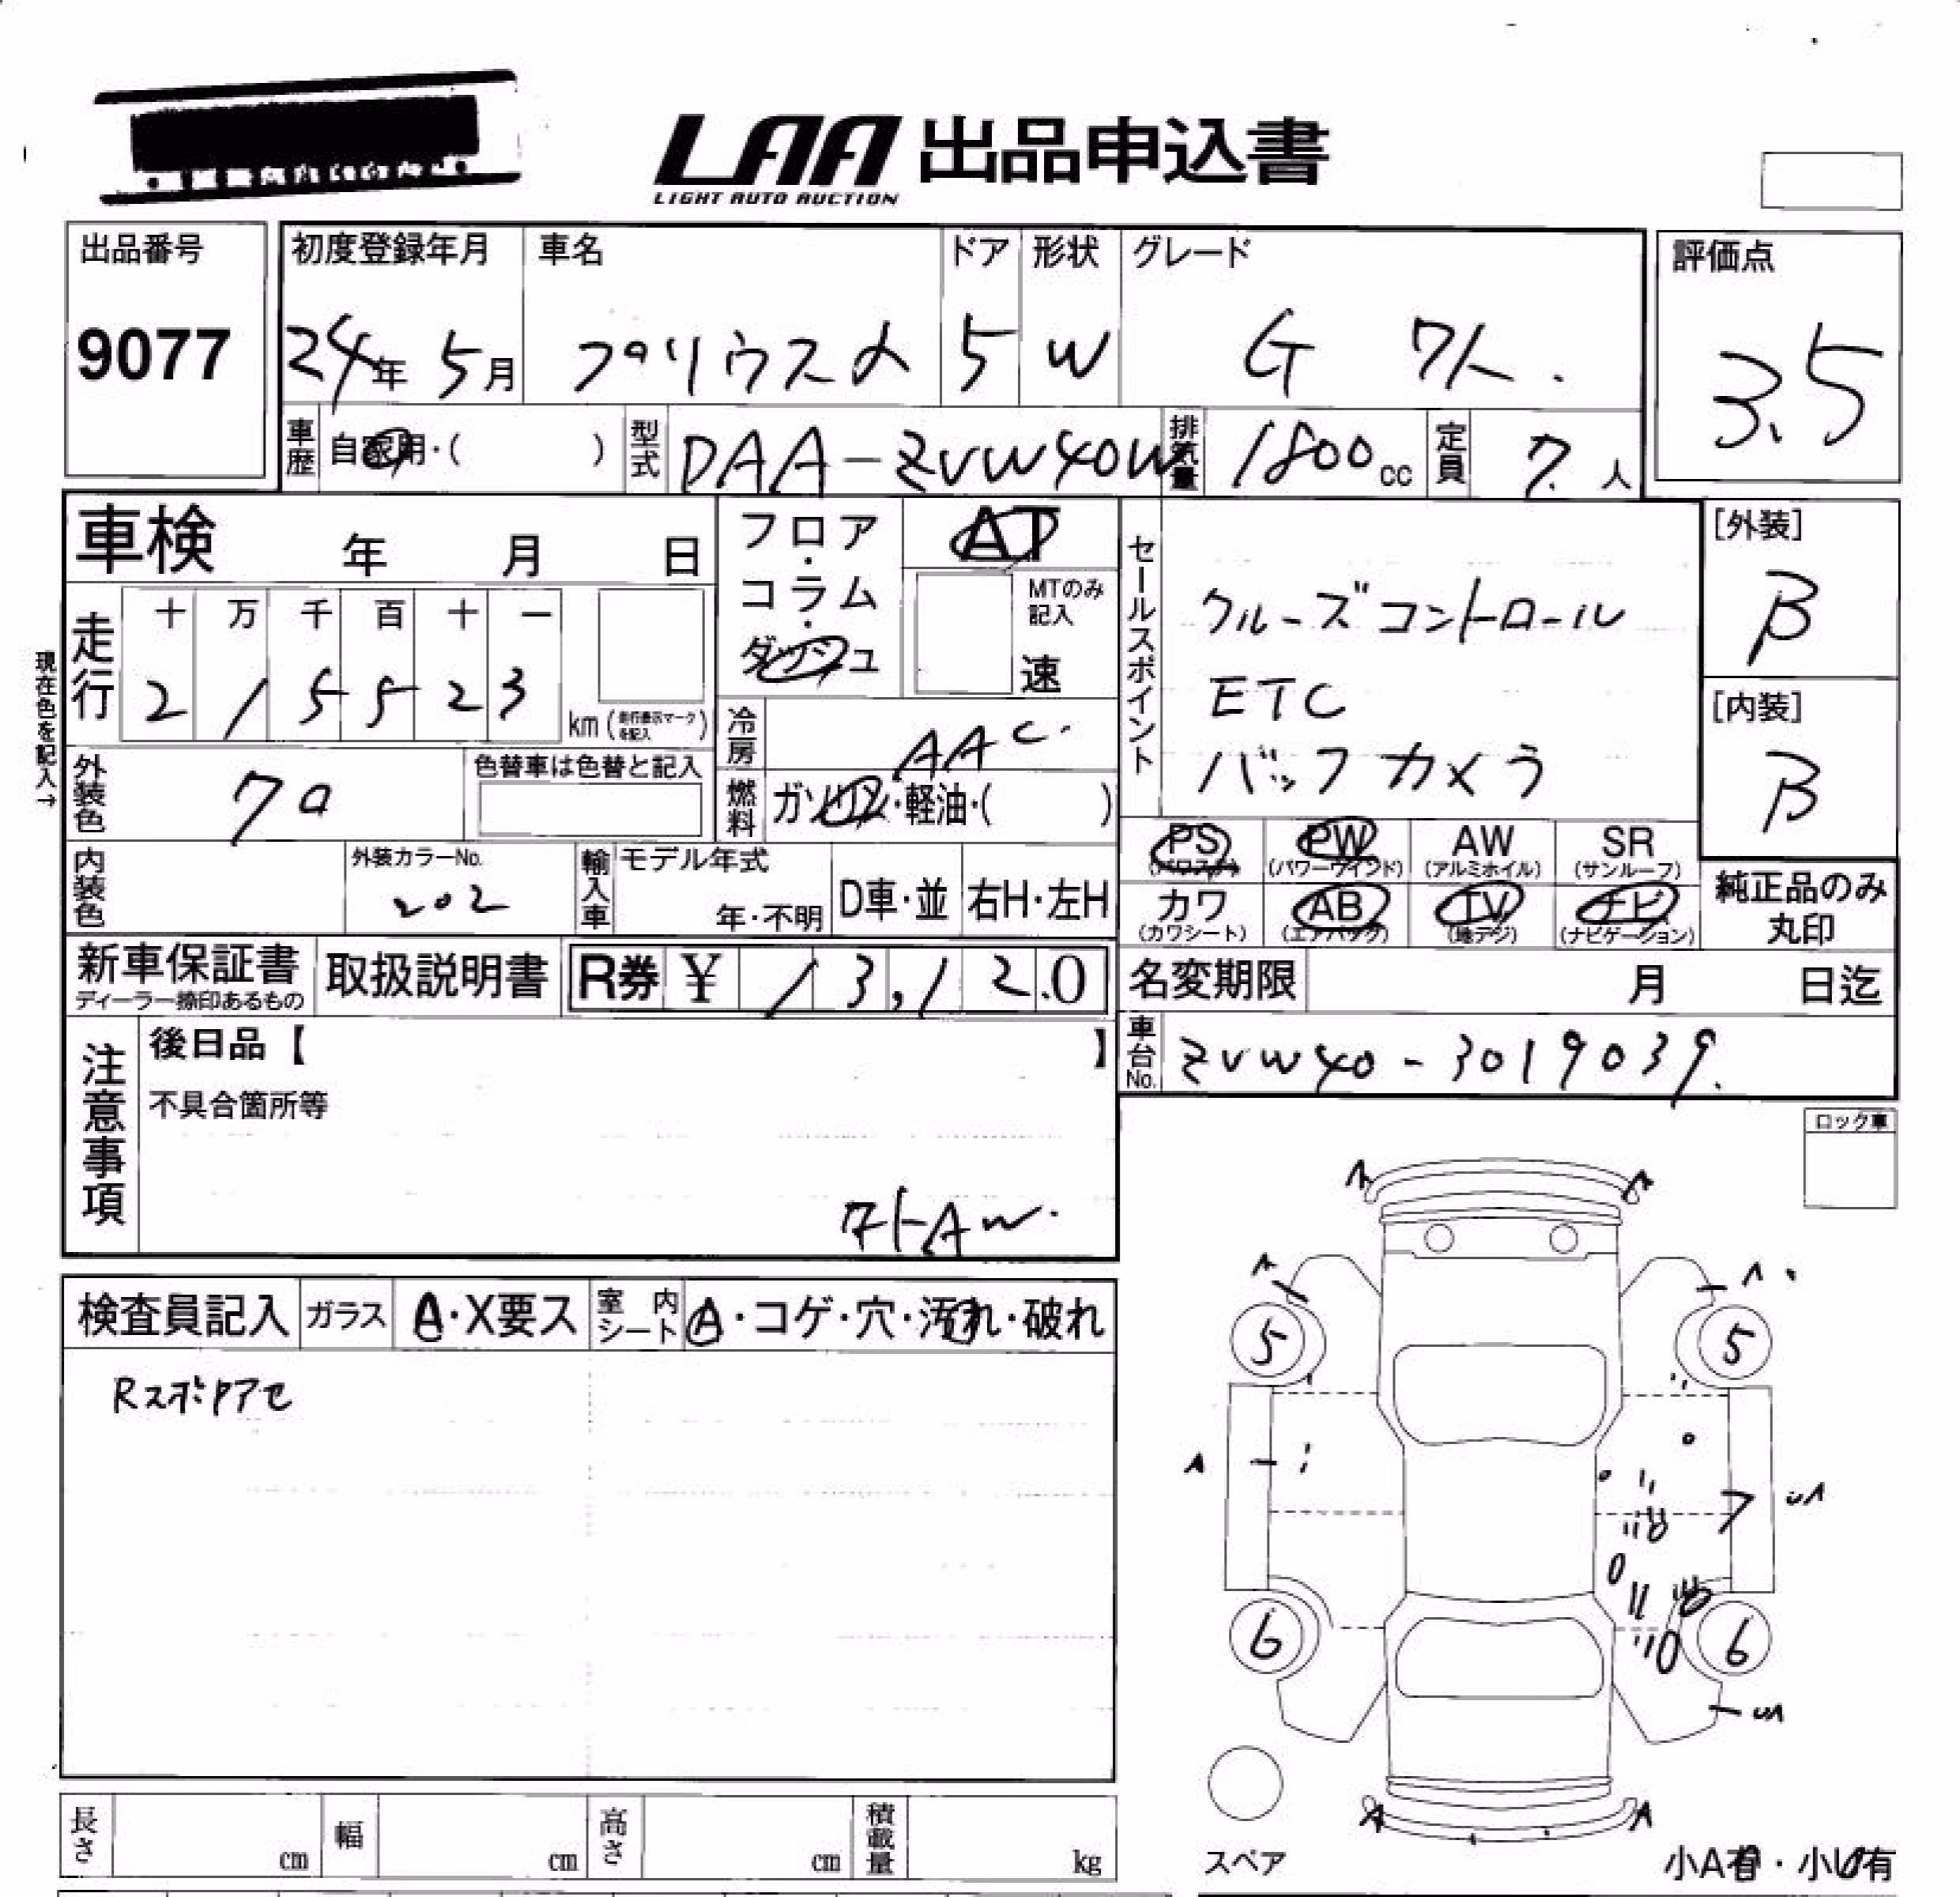 LAA 出品申込書
LIGHT AUTO AUCTION
出品番号
9077
初度登録年月 車名 ドア 形状 グレード
24年 5月 プリウスα 5 W G 7人.
評価点
3.5
車歴 自家用・( ) 型式 DAA-ZVW40W 排気量 1800cc 定員 7.人
車検 年 月 日
フロア・コラム・ダッシュ
AT
MTのみ記入
速
走行 十 万 千 百 十 一
2 1 5 5 2 3
km (走行表示マークを記入)
現在色を記入→
冷房 AAC.
燃料 ガソリン・軽油・( )
外装色 クロ
色替車は色替と記入
内装色
外装カラーNo.
202
輸入車 モデル年式
年・不明
D車・並 右H・左H
セールスポイント
クルーズコントロール
ETC
バックカメラ
[外装]
B
[内装]
B
PS (パワステ) PW (パワーウインド) AW (アルミホイル) SR (サンルーフ)
カワ (カワシート) AB (エアバック) TV (地デジ) ナビ (ナビゲーション)
純正品のみ丸印
新車保証書
ディーラー捺印あるもの
取扱説明書
R券 ¥ 13,120
名変期限 月 日迄
車台No. ZVW40-3019039.
注意事項
後日品【 】
不具合箇所等
AW.
ロック車
検査員記入 ガラス A・X要ス 室内シート A・コゲ・穴・汚れ・破れ
A A
A A
5 5
A
7
6 6
A A
スペア
小A有・小U有
長さ cm 幅 cm 高さ cm 積載量 kg